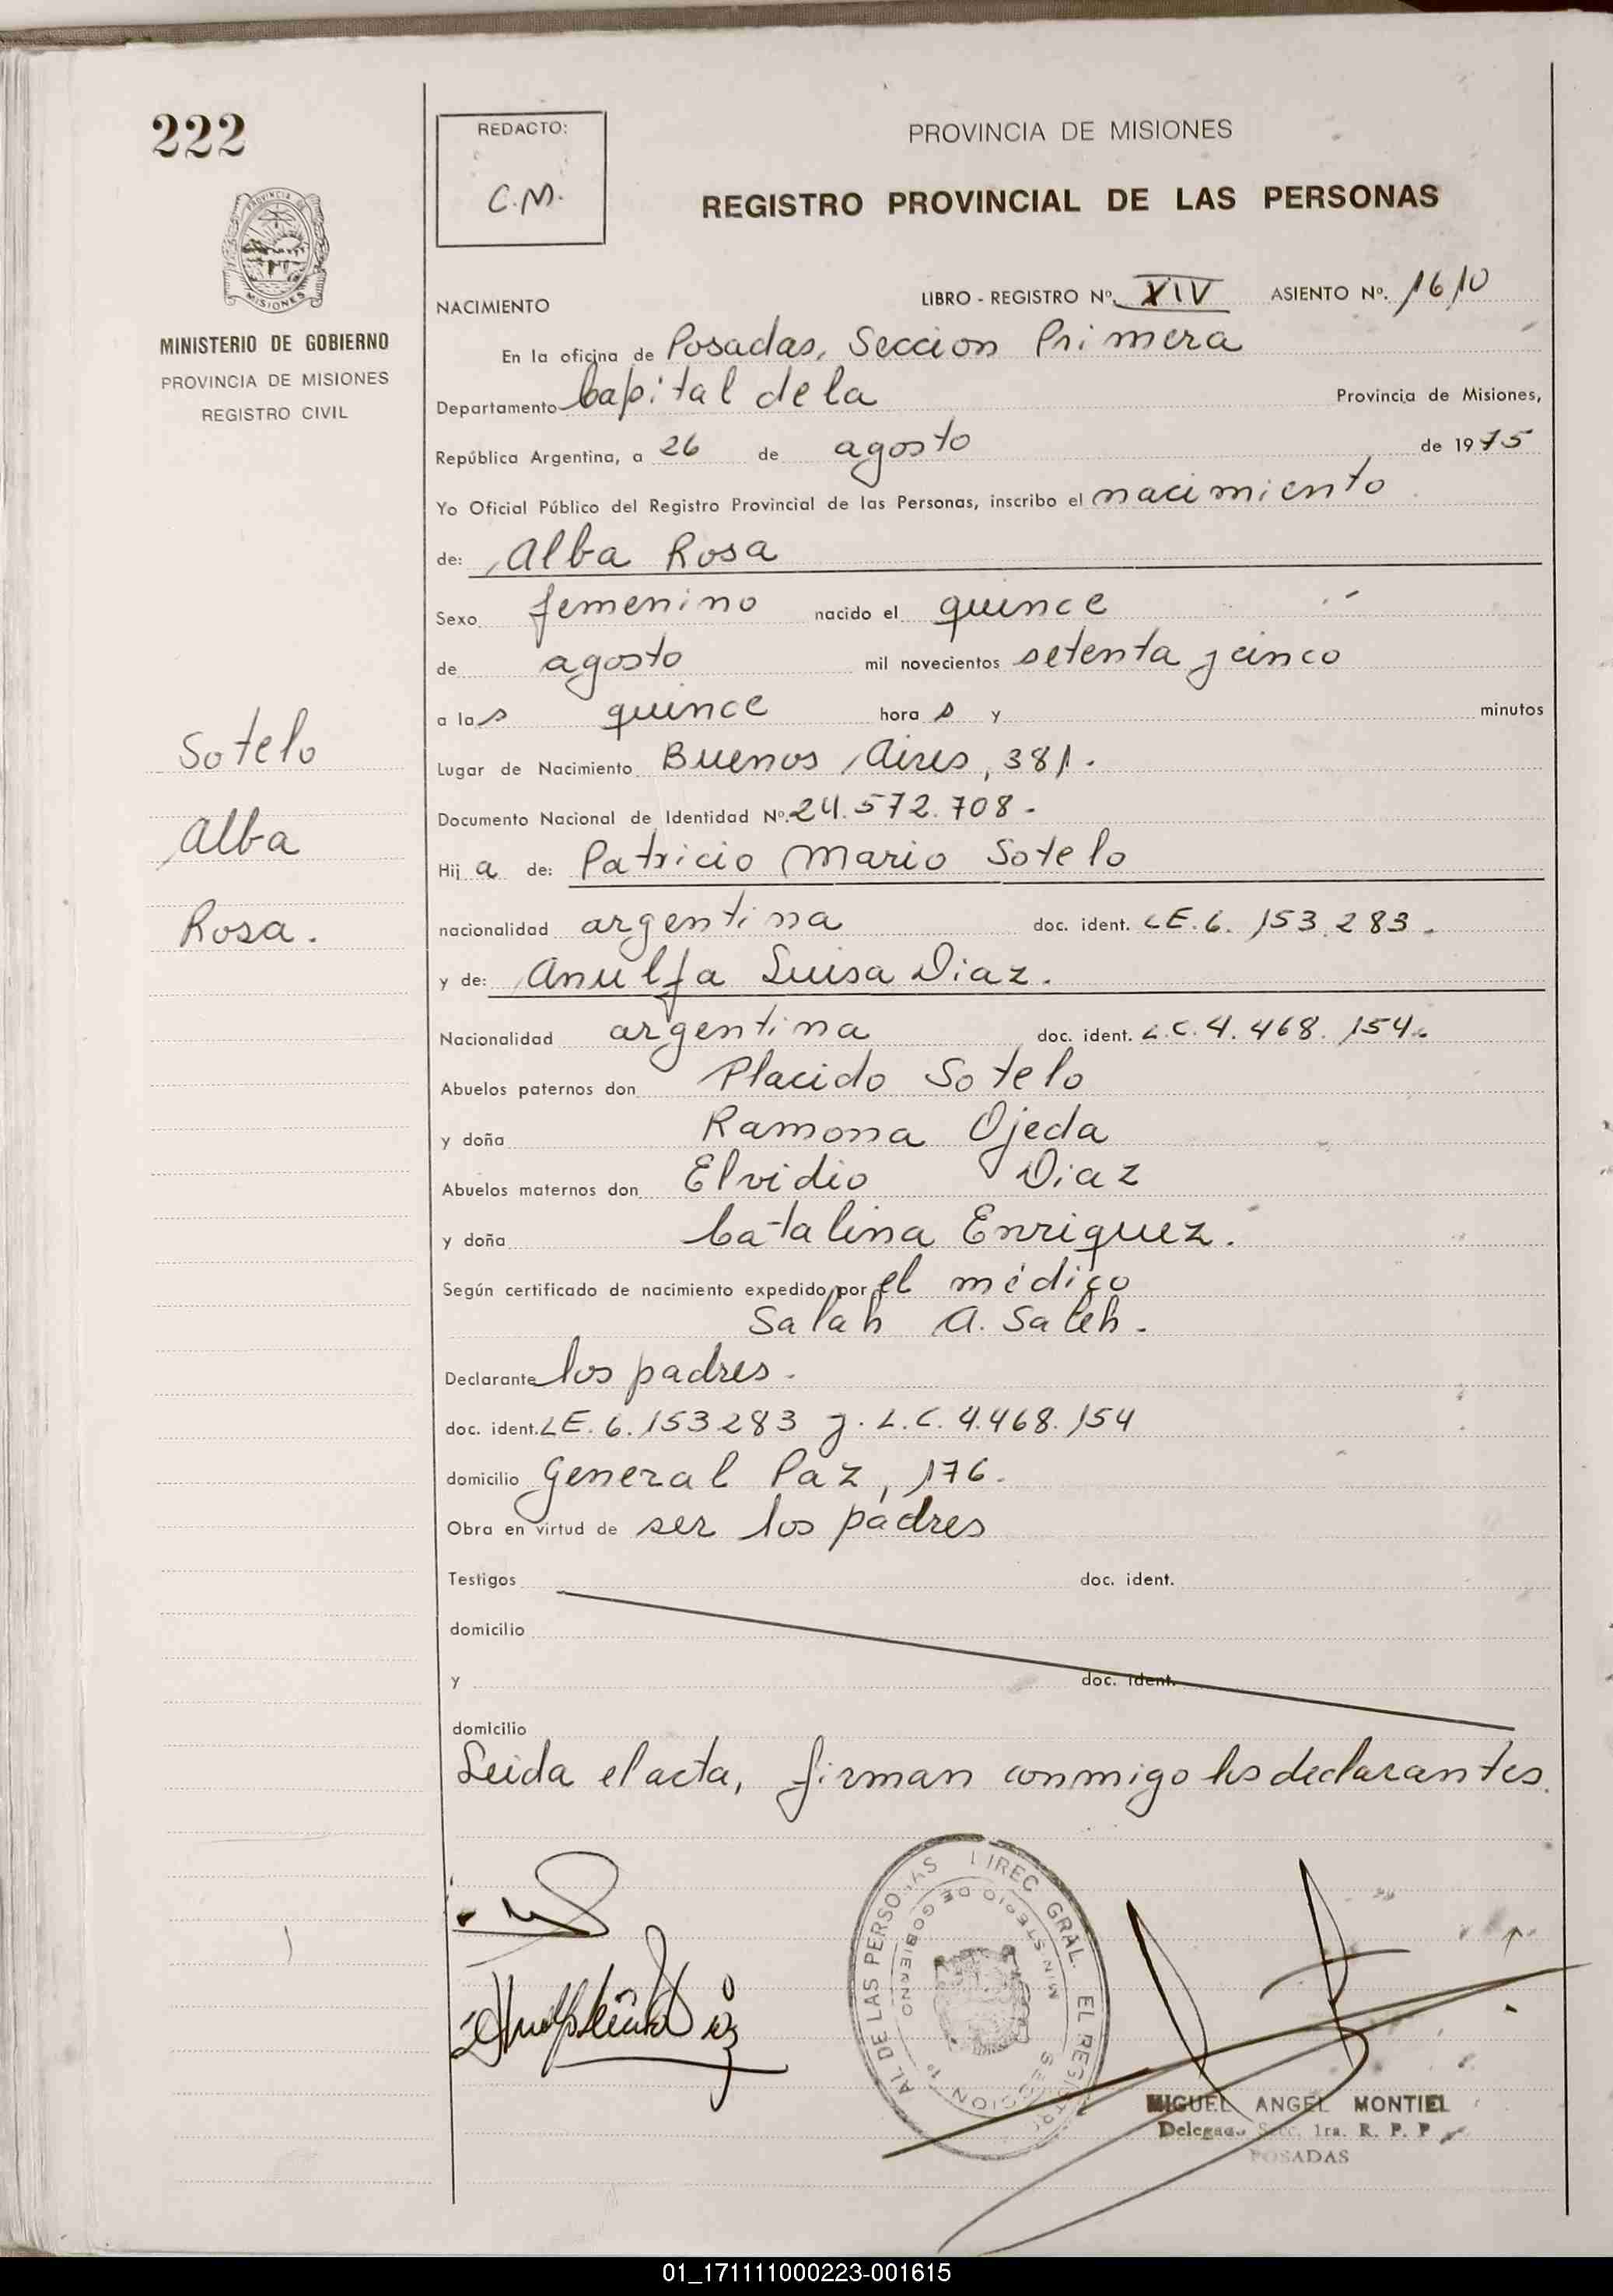 222
REDACTO:
C.M.
PROVINCIA DE MISIONES
REGISTRO PROVINCIAL DE LAS PERSONAS
MISIONES
MINISTERIO DE GOBIERNO
PROVINCIA DE MISIONES
REGISTRO CIVIL
NACIMIENTO LIBRO - REGISTRO Nº. XIV ASIENTO Nº. 1610
En la oficina de Posadas, Seccion Primera
Departamento Capital de la Provincia de Misiones,
República Argentina, a 26 de agosto de 1975
Yo Oficial Público del Registro Provincial de las Personas, inscribo el nacimiento
de: Alba Rosa
Sexo femenino nacido el quince
de agosto mil novecientos setenta y cinco
a las quince horas y minutos
Lugar de Nacimiento Buenos Aires, 381.
Documento Nacional de Identidad Nº. 24.572.708.
Hija de: Patricio Mario Sotelo
nacionalidad argentina doc. ident. LE. 6.153.283.
y de: Anulfa Luisa Diaz.
Nacionalidad argentina doc. ident. L.C. 4.468.154.
Abuelos paternos don Placido Sotelo
y doña Ramona Ojeda
Abuelos maternos don Elvidio Diaz
y doña Catalina Enriquez.
Según certificado de nacimiento expedido por el médico
Salah A. Saleh.
Declarante los padres.
doc. ident. LE. 6.153283 y. L.C. 4.468.154
domicilio General Paz, 176.
Obra en virtud de ser los padres
Testigos doc. ident.
domicilio
y doc. ident.
domicilio
Leida el acta, firman conmigo los declarantes.
Sotelo
Alba
Rosa.
DIREC. GRAL. DEL REGISTRO PROVINCIAL DE LAS PERSONAS
MINISTERIO DE GOBIERNO
SECCION 1ª
MIGUEL ANGEL MONTIEL
Delegado Secc. 1ra. R. P. P.
POSADAS
01_171111000223-001615